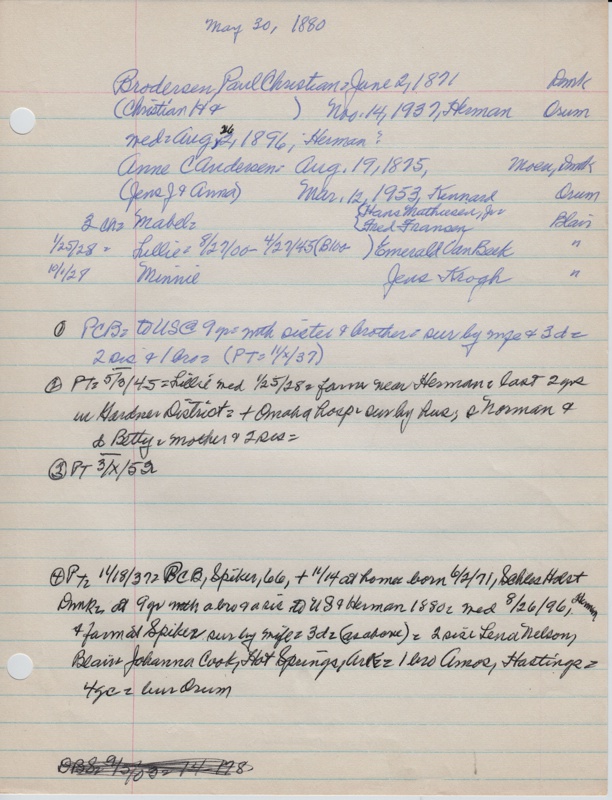 May 30, 1880
Brodersen, Paul Christian = June 2, 1871 Dmrk
(Christian H & ) Nov. 14, 1937, Herman Orum
wed = Aug 26, 1896, Herman:
Anne C Andersen = Aug. 19, 1875, Moen, Dmrk
(Jens J & Anna) Mar. 12, 1953, Kennard Orum
3 ch = Mabel = {Hans Mathiesen, Jr = Blair
{Fred Fransen
1/25/28 = Lillie = 8/27/00 - 4/27/45 (Blair ) Emerald Van Beek "
10/1/29 Minnie Jens Krogh "
① PCB = to US @ 9 yr = with sister & brother = sur by wife & 3 d =
2 sis & 1 bro = (PT = 11/X/37)
② PT = 5/3/45 = Lillie wed 1/25/28 = farm near Herman = last 2 yrs
in Gardner District = + Omaha hosp = sur by hus, s Norman &
d Betty = mother & 2 sis =
③ PT 3/X/53
④ PT = 11/18/37 = PCB, Spiker, 66, + 11/14 at home = born 6/2/71, Schles Holst
Dmrk = at 9 yr with a bro & a sis to US & Herman 1880 = wed 8/26/96, Herman
+ farm at Spiker = sur by wife = 3 d = (as above) = 2 sis = Lena Nelson,
Blair & Johanna Cook, Hot Springs, Ark = 1 bro Amos, Hastings =
4 gc = bur Orum